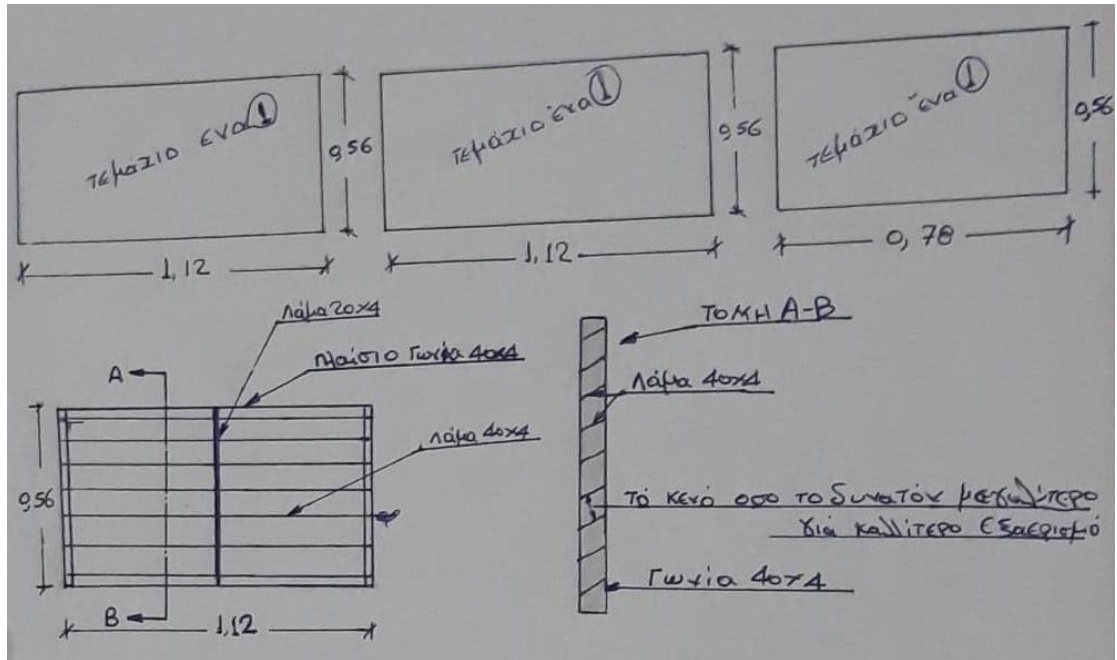 τεμάχιο ένα ①
9,56
1,12
τεμάχιο ένα ①
9,56
1,12
τεμάχιο ένα ①
0,56
0,78
Λάμα 20×4
Πλαίσιο Γωνία 40×4
Λάμα 40×4
A
B
9,56
1,12
ΤΟΜΗ Α-Β
Λάμα 40×4
Τό κενό οσο το δυνατόν μεγαλύτερο
διά καλλίτερο εξαερισμό
Γωνία 40×4